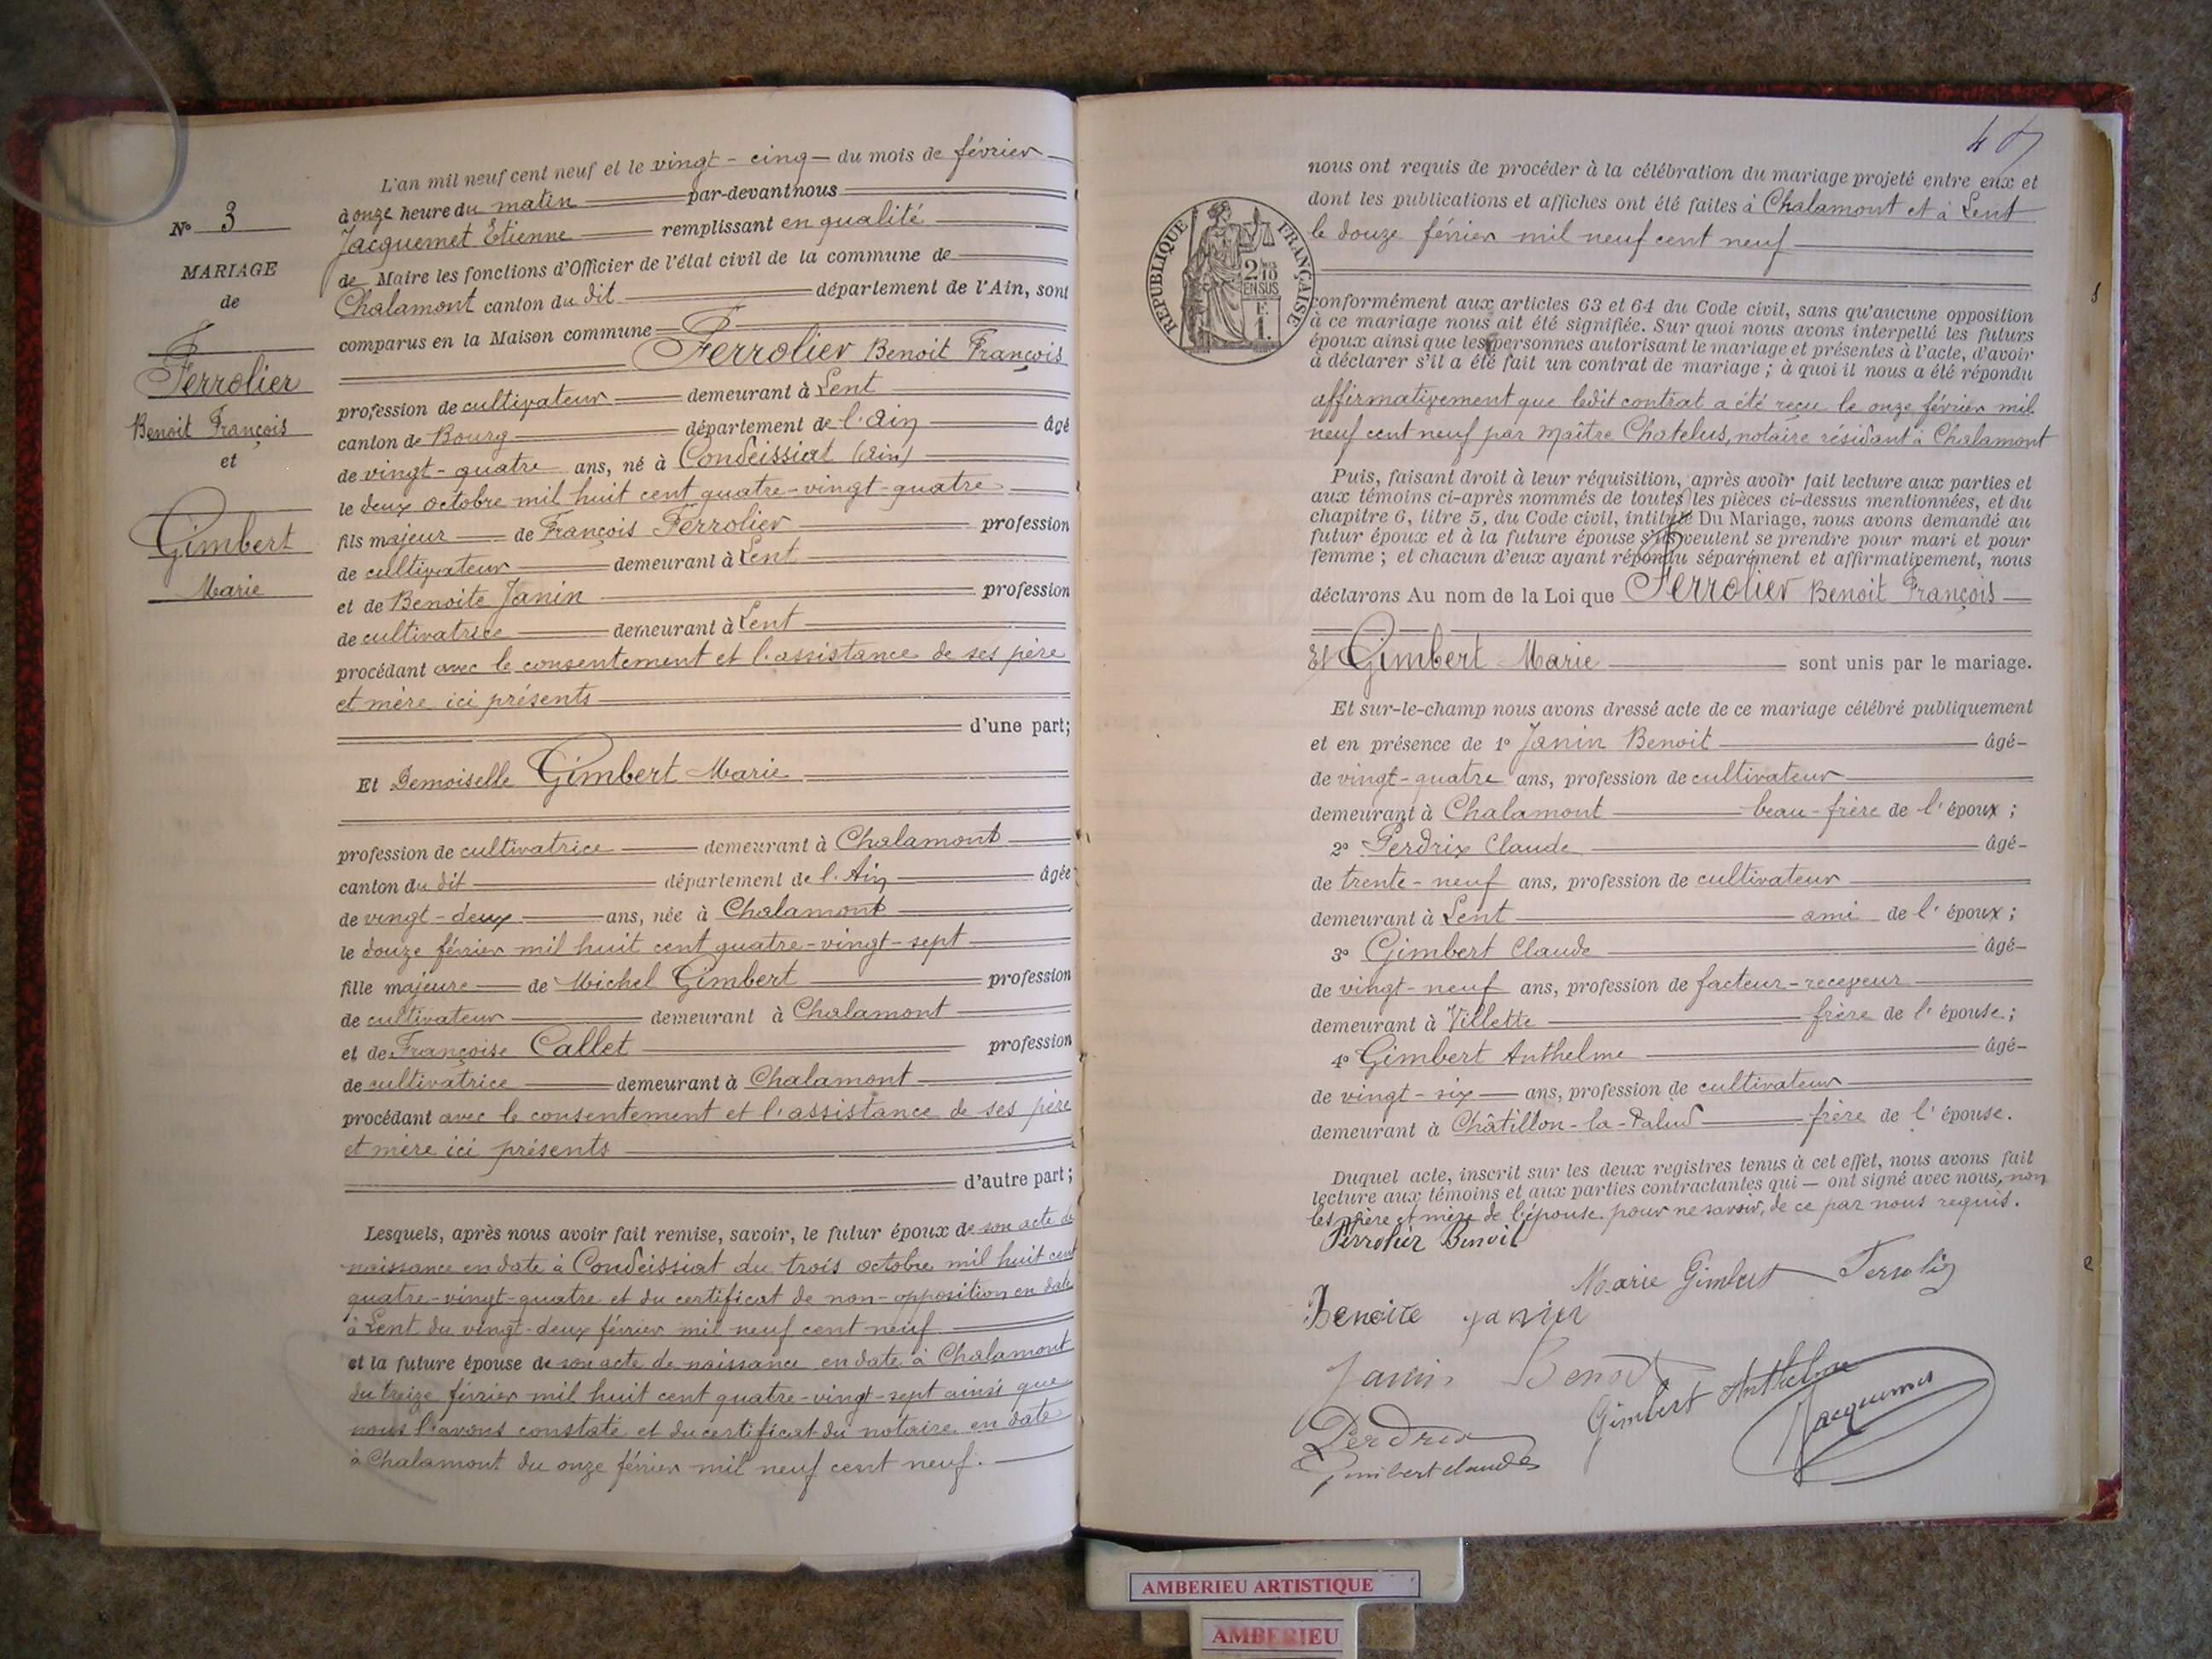 N° 3
MARIAGE
de
Ferrolier
Benoit François
et
Gimbert
Marie
L'an mil neuf cent neuf et le vingt-cinq du mois de février
à onze heure du matin par-devant nous
Jacquemet Etienne remplissant en qualité
de Maire les fonctions d'Officier de l'état civil de la commune de
Chalamont canton du dit département de l'Ain, sont
comparus en la Maison commune
Ferrolier Benoit François
profession de cultivateur demeurant à Lent
canton de Bourg département de l'Ain âgé
de vingt-quatre ans, né à Condeissiat (Ain)
le deux octobre mil huit cent quatre-vingt-quatre
fils majeur de François Ferrolier profession
de cultivateur demeurant à Lent
et de Benoite Janin profession
de cultivatrice demeurant à Lent
procédant avec le consentement et l'assistance de ses père
et mère ici présents
d'une part;
Et Demoiselle Gimbert Marie
profession de cultivatrice demeurant à Chalamont
canton du dit département de l'Ain âgée
de vingt-deux ans, née à Chalamont
le douze février mil huit cent quatre-vingt-sept
fille majeure de Michel Gimbert profession
de cultivateur demeurant à Chalamont
et de Françoise Callet profession
de cultivatrice demeurant à Chalamont
procédant avec le consentement et l'assistance de ses père
et mère ici présents
d'autre part;
Lesquels, après nous avoir fait remise, savoir, le futur époux de son acte de
naissance en date à Condeissiat du trois octobre mil huit cent
quatre-vingt-quatre et du certificat de non-opposition en date
à Lent du vingt-deux février mil neuf cent neuf
et la future épouse de son acte de naissance en date à Chalamont
du treize février mil huit cent quatre-vingt-sept ainsi que
nous l'avons constaté et du certificat du notaire en date
à Chalamont du onze février mil neuf cent neuf.
nous ont requis de procéder à la célébration du mariage projeté entre eux et
dont les publications et affiches ont été faites à Chalamont et à Lent
le douze février mil neuf cent neuf
REPUBLIQUE FRANÇAISE
2/10
EN SUS
F.
1.
conformément aux articles 63 et 64 du Code civil, sans qu'aucune opposition
à ce mariage nous ait été signifiée. Sur quoi nous avons interpellé les futurs
époux ainsi que les personnes autorisant le mariage et présentes à l'acte, d'avoir
à déclarer s'il a été fait un contrat de mariage ; à quoi il nous a été répondu
affirmativement que ledit contrat a été reçu le onze février mil
neuf cent neuf par Maître Chatelus, notaire résidant à Chalamont
Puis, faisant droit à leur réquisition, après avoir fait lecture aux parties et
aux témoins ci-après nommés de toutes les pièces ci-dessus mentionnées, et du
chapitre 6, titre 5, du Code civil, intitulé Du Mariage, nous avons demandé au
futur époux et à la future épouse s'ils veulent se prendre pour mari et pour
femme ; et chacun d'eux ayant répondu séparément et affirmativement, nous
déclarons Au nom de la Loi que Ferrolier Benoit François
Et Gimbert Marie sont unis par le mariage.
Et sur-le-champ nous avons dressé acte de ce mariage célébré publiquement
et en présence de 1° Janin Benoit âgé
de vingt-quatre ans, profession de cultivateur
demeurant à Chalamont beau-frère de l'époux ;
2° Perdrix Claude âgé
de trente-neuf ans, profession de cultivateur
demeurant à Lent ami de l'époux ;
3° Gimbert Claude âgé
de vingt-neuf ans, profession de facteur-receveur
demeurant à Villette frère de l'épouse ;
4° Gimbert Anthelme âgé
de vingt-six ans, profession de cultivateur
demeurant à Châtillon-la-Palud frère de l'épouse.
Duquel acte, inscrit sur les deux registres tenus à cet effet, nous avons fait
lecture aux témoins et aux parties contractantes qui — ont signé avec nous, non
les père et mère de l'épouse pour ne savoir, de ce par nous requis.
Ferrolier Benoit
Marie Gimbert
Benoite Janin
Janin Benoit
Gimbert Anthelme
Jacquemet
Perdrix
Gimbert Claude
AMBERIEU ARTISTIQUE
AMBERIEU